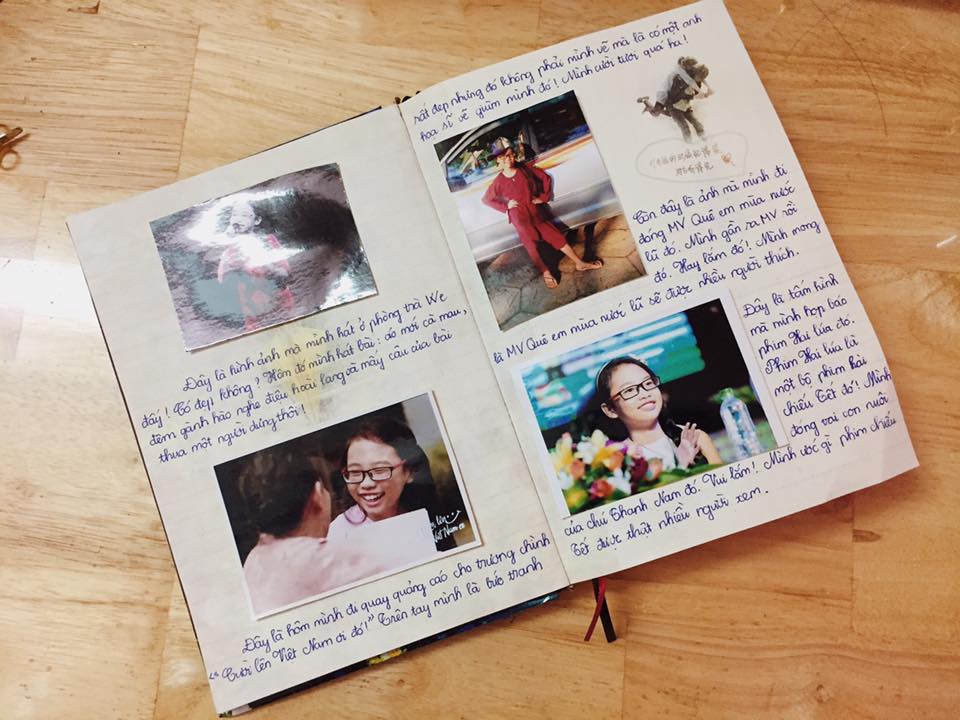 Đây là hình ảnh mà mình hát ở phòng trà We
đấy! Có đẹp không? Hôm đó mình hát bài: áo mới cà mau,
đêm gành hào nghe điệu hoài lang và mấy câu của bài
thua một người dưng thôi!
Đây là hôm mình đi quay quảng cáo cho trương chình
"Cười lên Việt Nam ơi đó!" Trên tay mình là bức tranh
rất đẹp nhưng đó không phải mình vẽ mà là có một anh
hoạ sĩ vẽ giùm mình đó! Mình cười tươi quá ha!
Còn đây là ảnh mà mình đi
đóng MV Quê em mùa nước
lũ đó. Mình gần ra MV rồi
đó. Hay lắm đó! Mình mong
là MV Quê em mùa nước lũ sẽ được nhiều người thích.
Đây là tấm hình
mà mình họp báo
phim Hai lúa đó.
Phim Hai lúa là
một bộ phim hài
chiếu Tết đó! Mình
đóng vai con nuôi
của chú Thanh Nam đó! Vui lắm! Mình ước gì phim chiếu
Tết được thật nhiều người xem.
lên
Việt Nam ơi